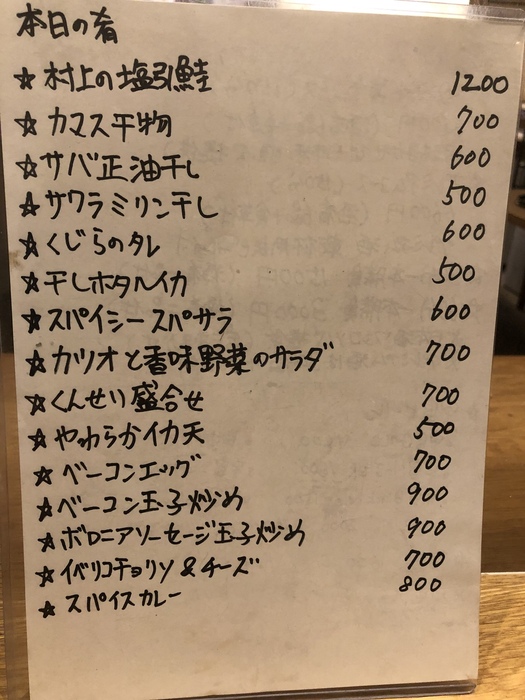 本日の肴
☆ 村上の塩引鮭 1200
☆ カマス干物 700
☆ サバ正油干し 600
☆ サワラミリン干し 500
☆ くじらのタレ 600
☆ 干しホタルイカ 500
☆ スパイシースパサラ 600
☆ カツオと香味野菜のサラダ 700
☆ くんせい盛合せ 700
☆ やわらかイカ天 500
☆ ベーコンエッグ 700
☆ ベーコン玉子炒め 900
☆ ボロニアソーセージ玉子炒め 900
☆ イベリコチョリソ&チーズ 700
☆ スパイスカレー 800